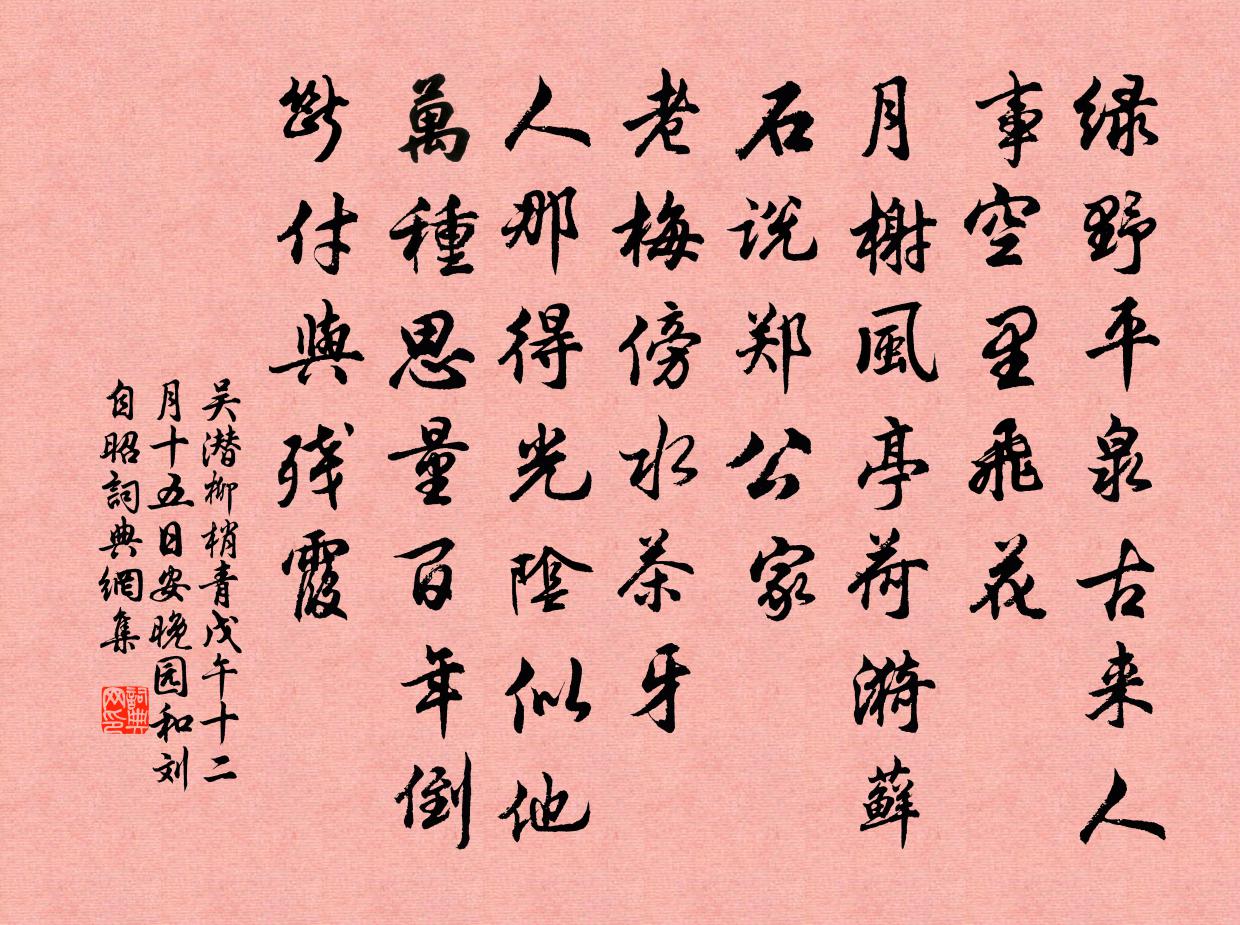 绿野平泉古来人
事空里飛花
月榭風亭荷漪蘚
石说郑公家
老梅傍水茶牙
人那得光陰似他
萬種思量百年倒
断付與残霞
吴潜柳梢青戊午十二
月十五日安晚园和刘
自昭詞典網集
詞典
网印